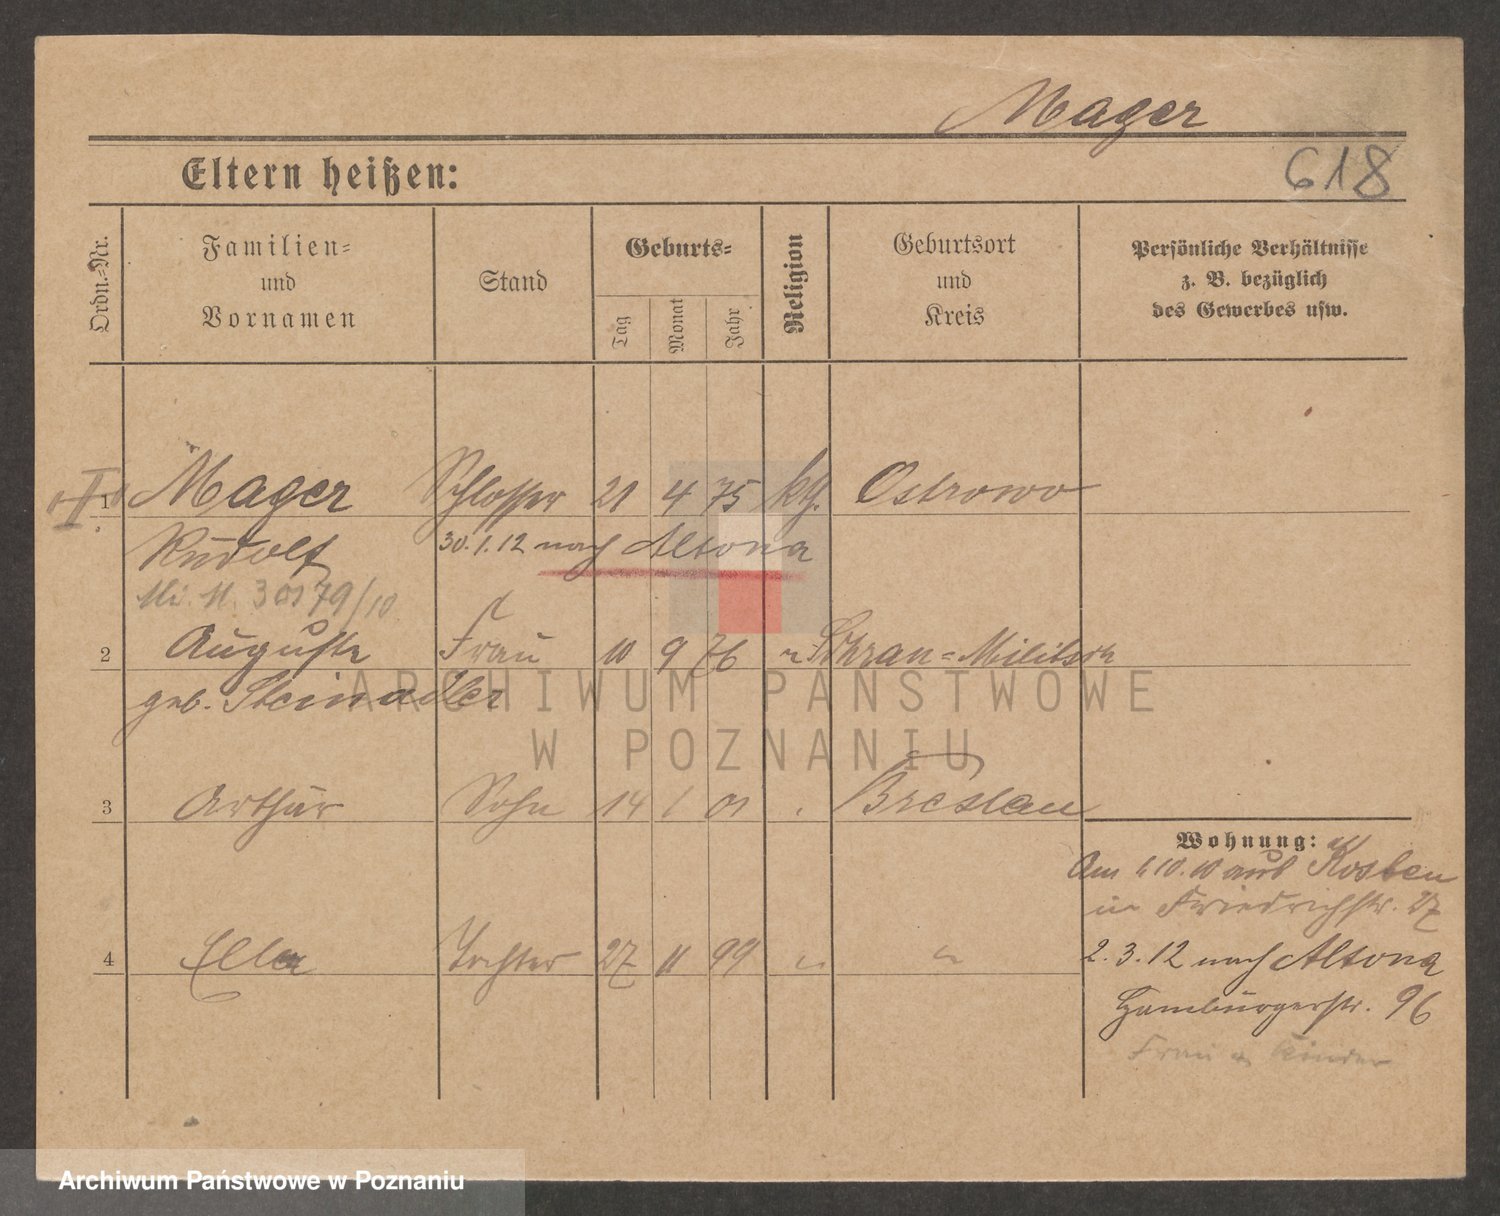 Mager
Eltern heißen:
618
Ordn.=Nr.
Familien=
und
Vornamen
Stand
Geburts=
Tag
Monat
Jahr
Religion
Geburtsort
und
Kreis
Persönliche Verhältnisse
z. B. bezüglich
des Gewerbes usw.
I
1 Mager Schlosser 21 4 75 kth. Ostrowo
Rudolf 30. 1. 12 nach Altona
79/10
2 Auguste Frau 10 9 76 " Militsch
geb. Steinadler
ARCHIWUM PAŃSTWOWE
W POZNANIU
3 Arthur Sohn 14 1 01 Breslau
Wohnung:
Am 10. 10 aus Kosten
in Friedrichstr. 27
4 Ella Tochter 27 11 99 " "
2. 3. 12 nach Altona
Hamburgerstr. 96
Frau u Kinder
Archiwum Państwowe w Poznaniu